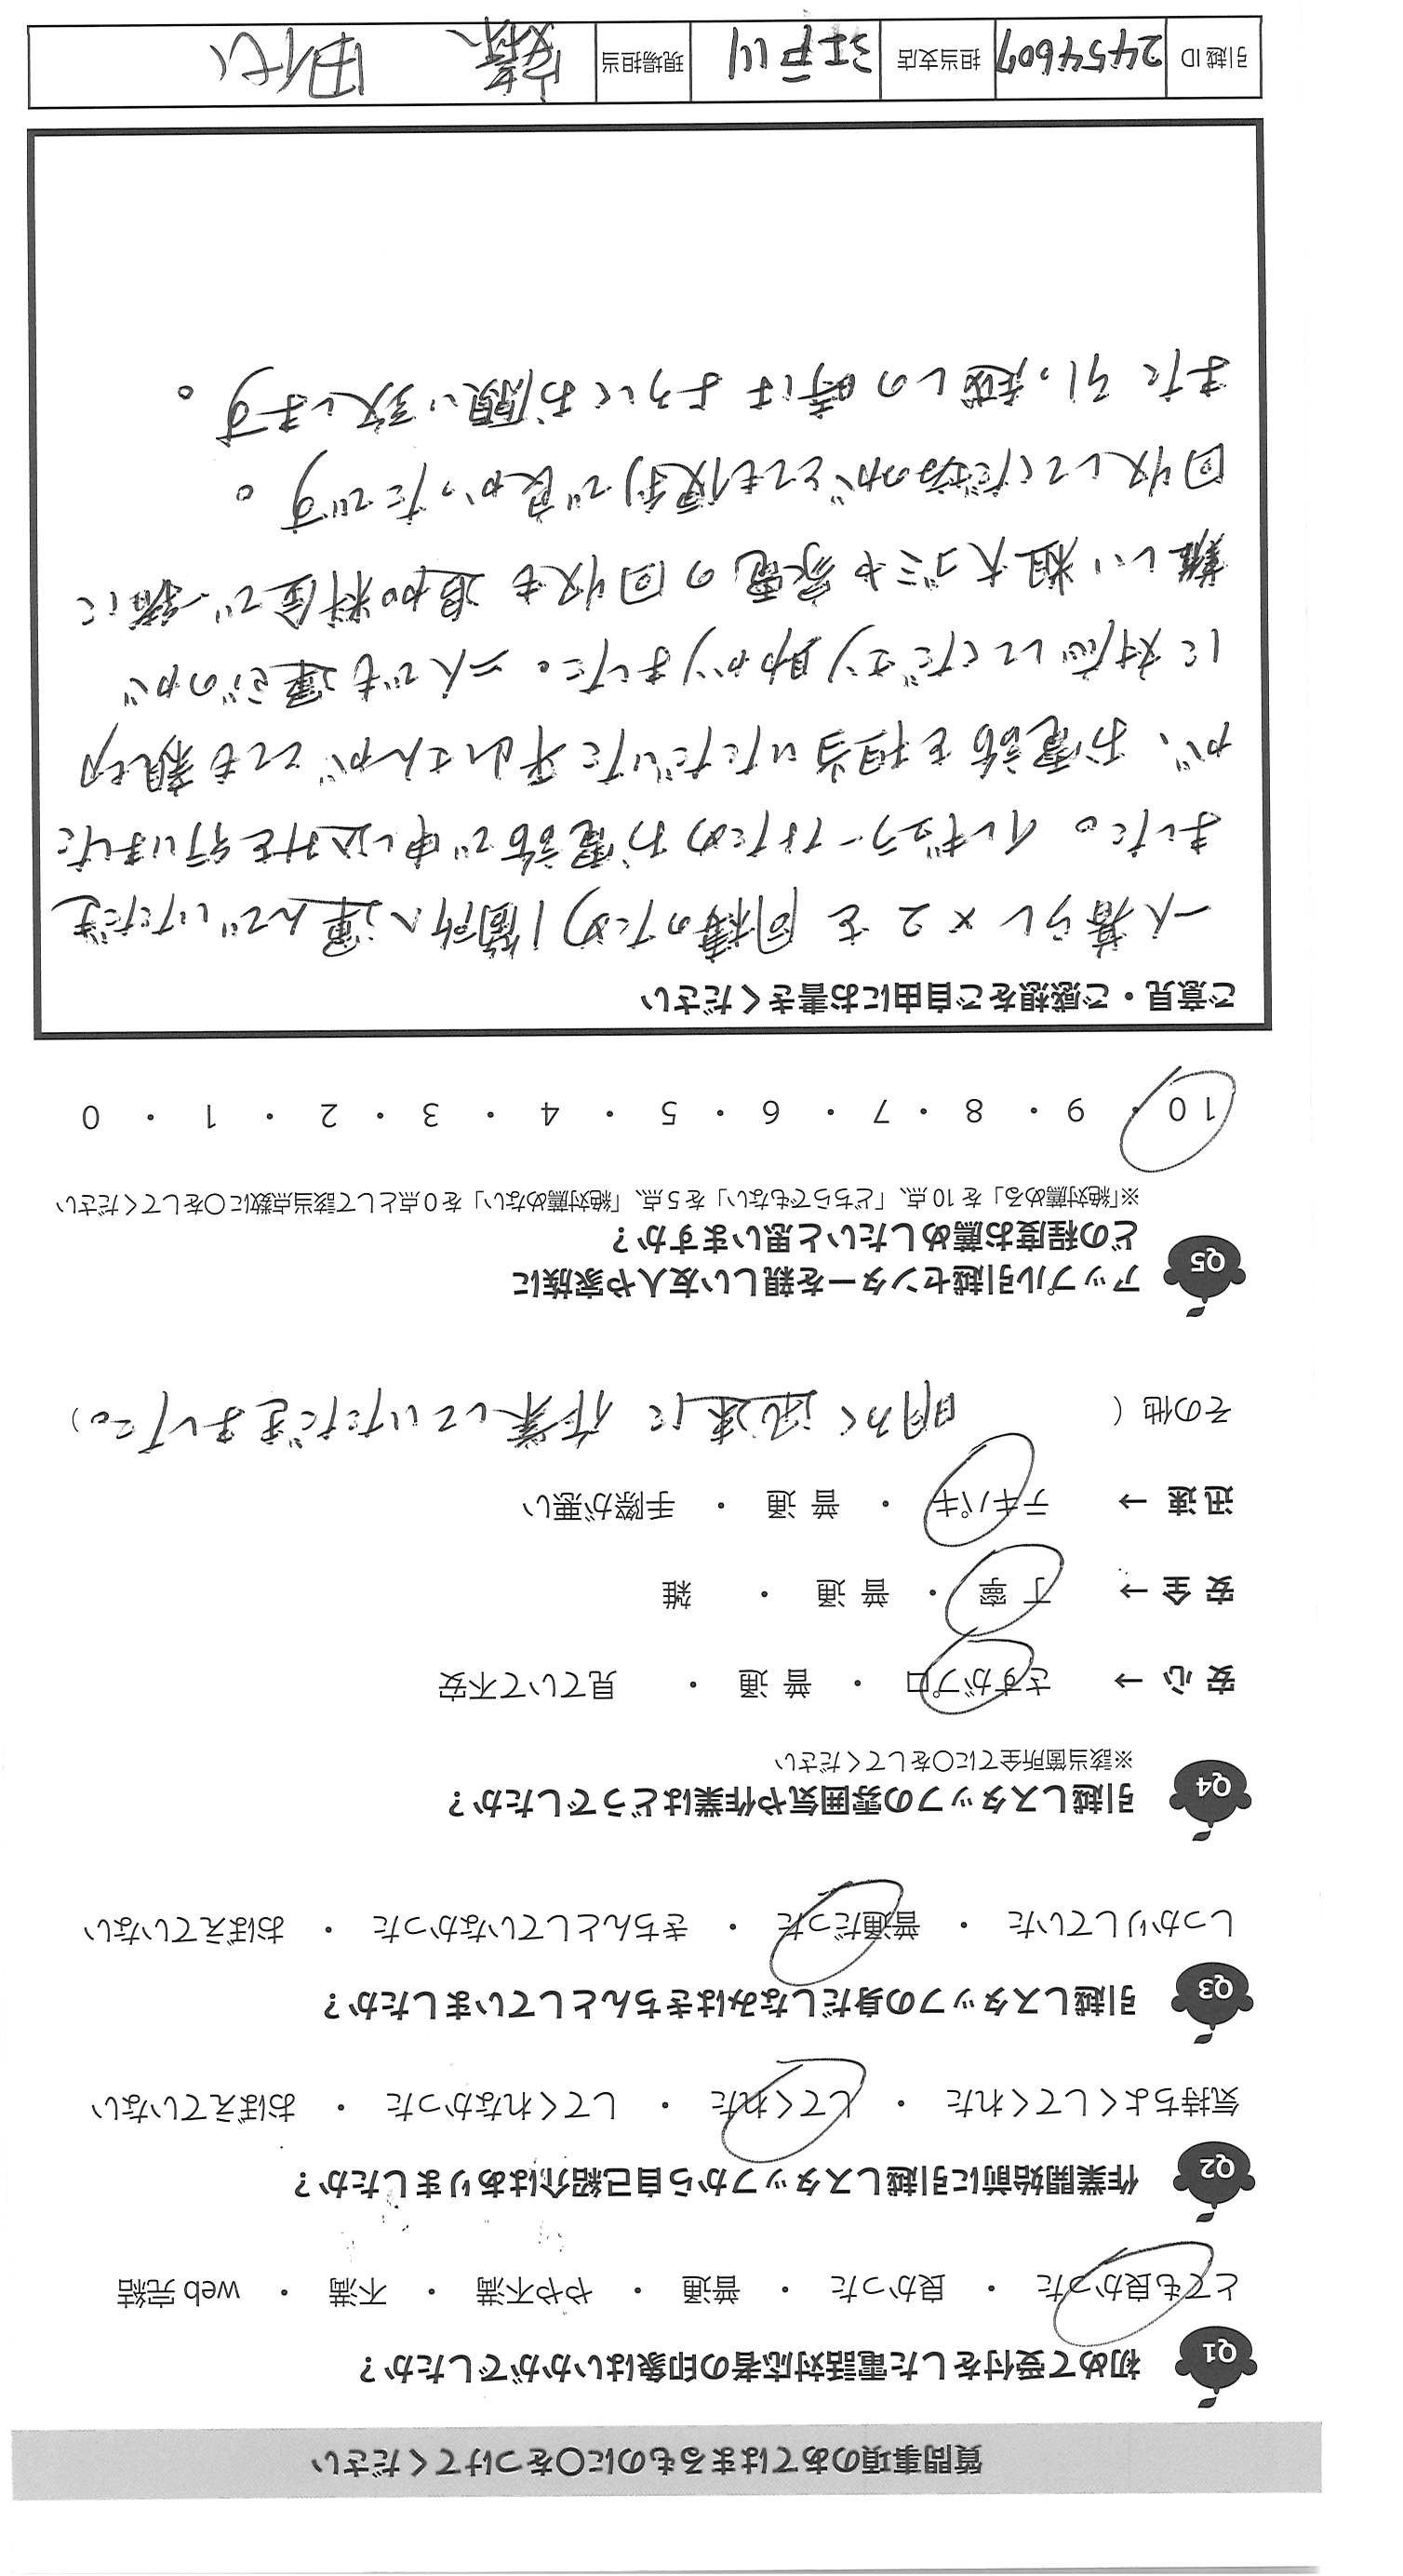 質問事項のあてはまるものに○をつけてください
Q1 初めて受付をした電話対応者の印象はいかがでしたか？
とても良かった ・ 良かった ・ 普通 ・ やや不満 ・ 不満 ・ web完結
Q2 作業開始前に引越しスタッフから自己紹介はありましたか？
気持ちよくしてくれた ・ してくれた ・ してくれなかった ・ おぼえていない
Q3 引越しスタッフの身だしなみはきちんとしていましたか？
しっかりしていた ・ 普通だった ・ きちんとしていなかった ・ おぼえていない
Q4 引越しスタッフの雰囲気や作業はどうでしたか？
※該当箇所全てに○をしてください
安心 → さすがプロ ・ 普通 ・ 見ていて不安
安全 → 丁寧 ・ 普通 ・ 雑
迅速 → テキパキ ・ 普通 ・ 手際が悪い
その他（ 明るく迅速に作業していただきました。）
Q5 アップル引越センターを親しい友人や家族に
どの程度お薦めしたいと思いますか？
※「絶対薦める」を10点、「どちらでもない」を5点、「絶対薦めない」を0点として該当点数に○をしてください
10 ・ 9 ・ 8 ・ 7 ・ 6 ・ 5 ・ 4 ・ 3 ・ 2 ・ 1 ・ 0
ご意見・ご感想をご自由にお書きください
一人暮らし×2を同棲のため1箇所へ運んでいただき
ました。イレギュラーなためお電話で申し込みを行いました
が、お電話を担当いただいた平山さんがとても親切
に対応してくださり助かりました。二人でも運ぶのが
難しい粗大ゴミや家電の回収も追加料金で一緒に
回収してくださるのがとても便利で良かったです。
また引っ越しの時はよろしくお願い致します。
引越ID 24546607 担当支店 江戸川 現場担当 田代